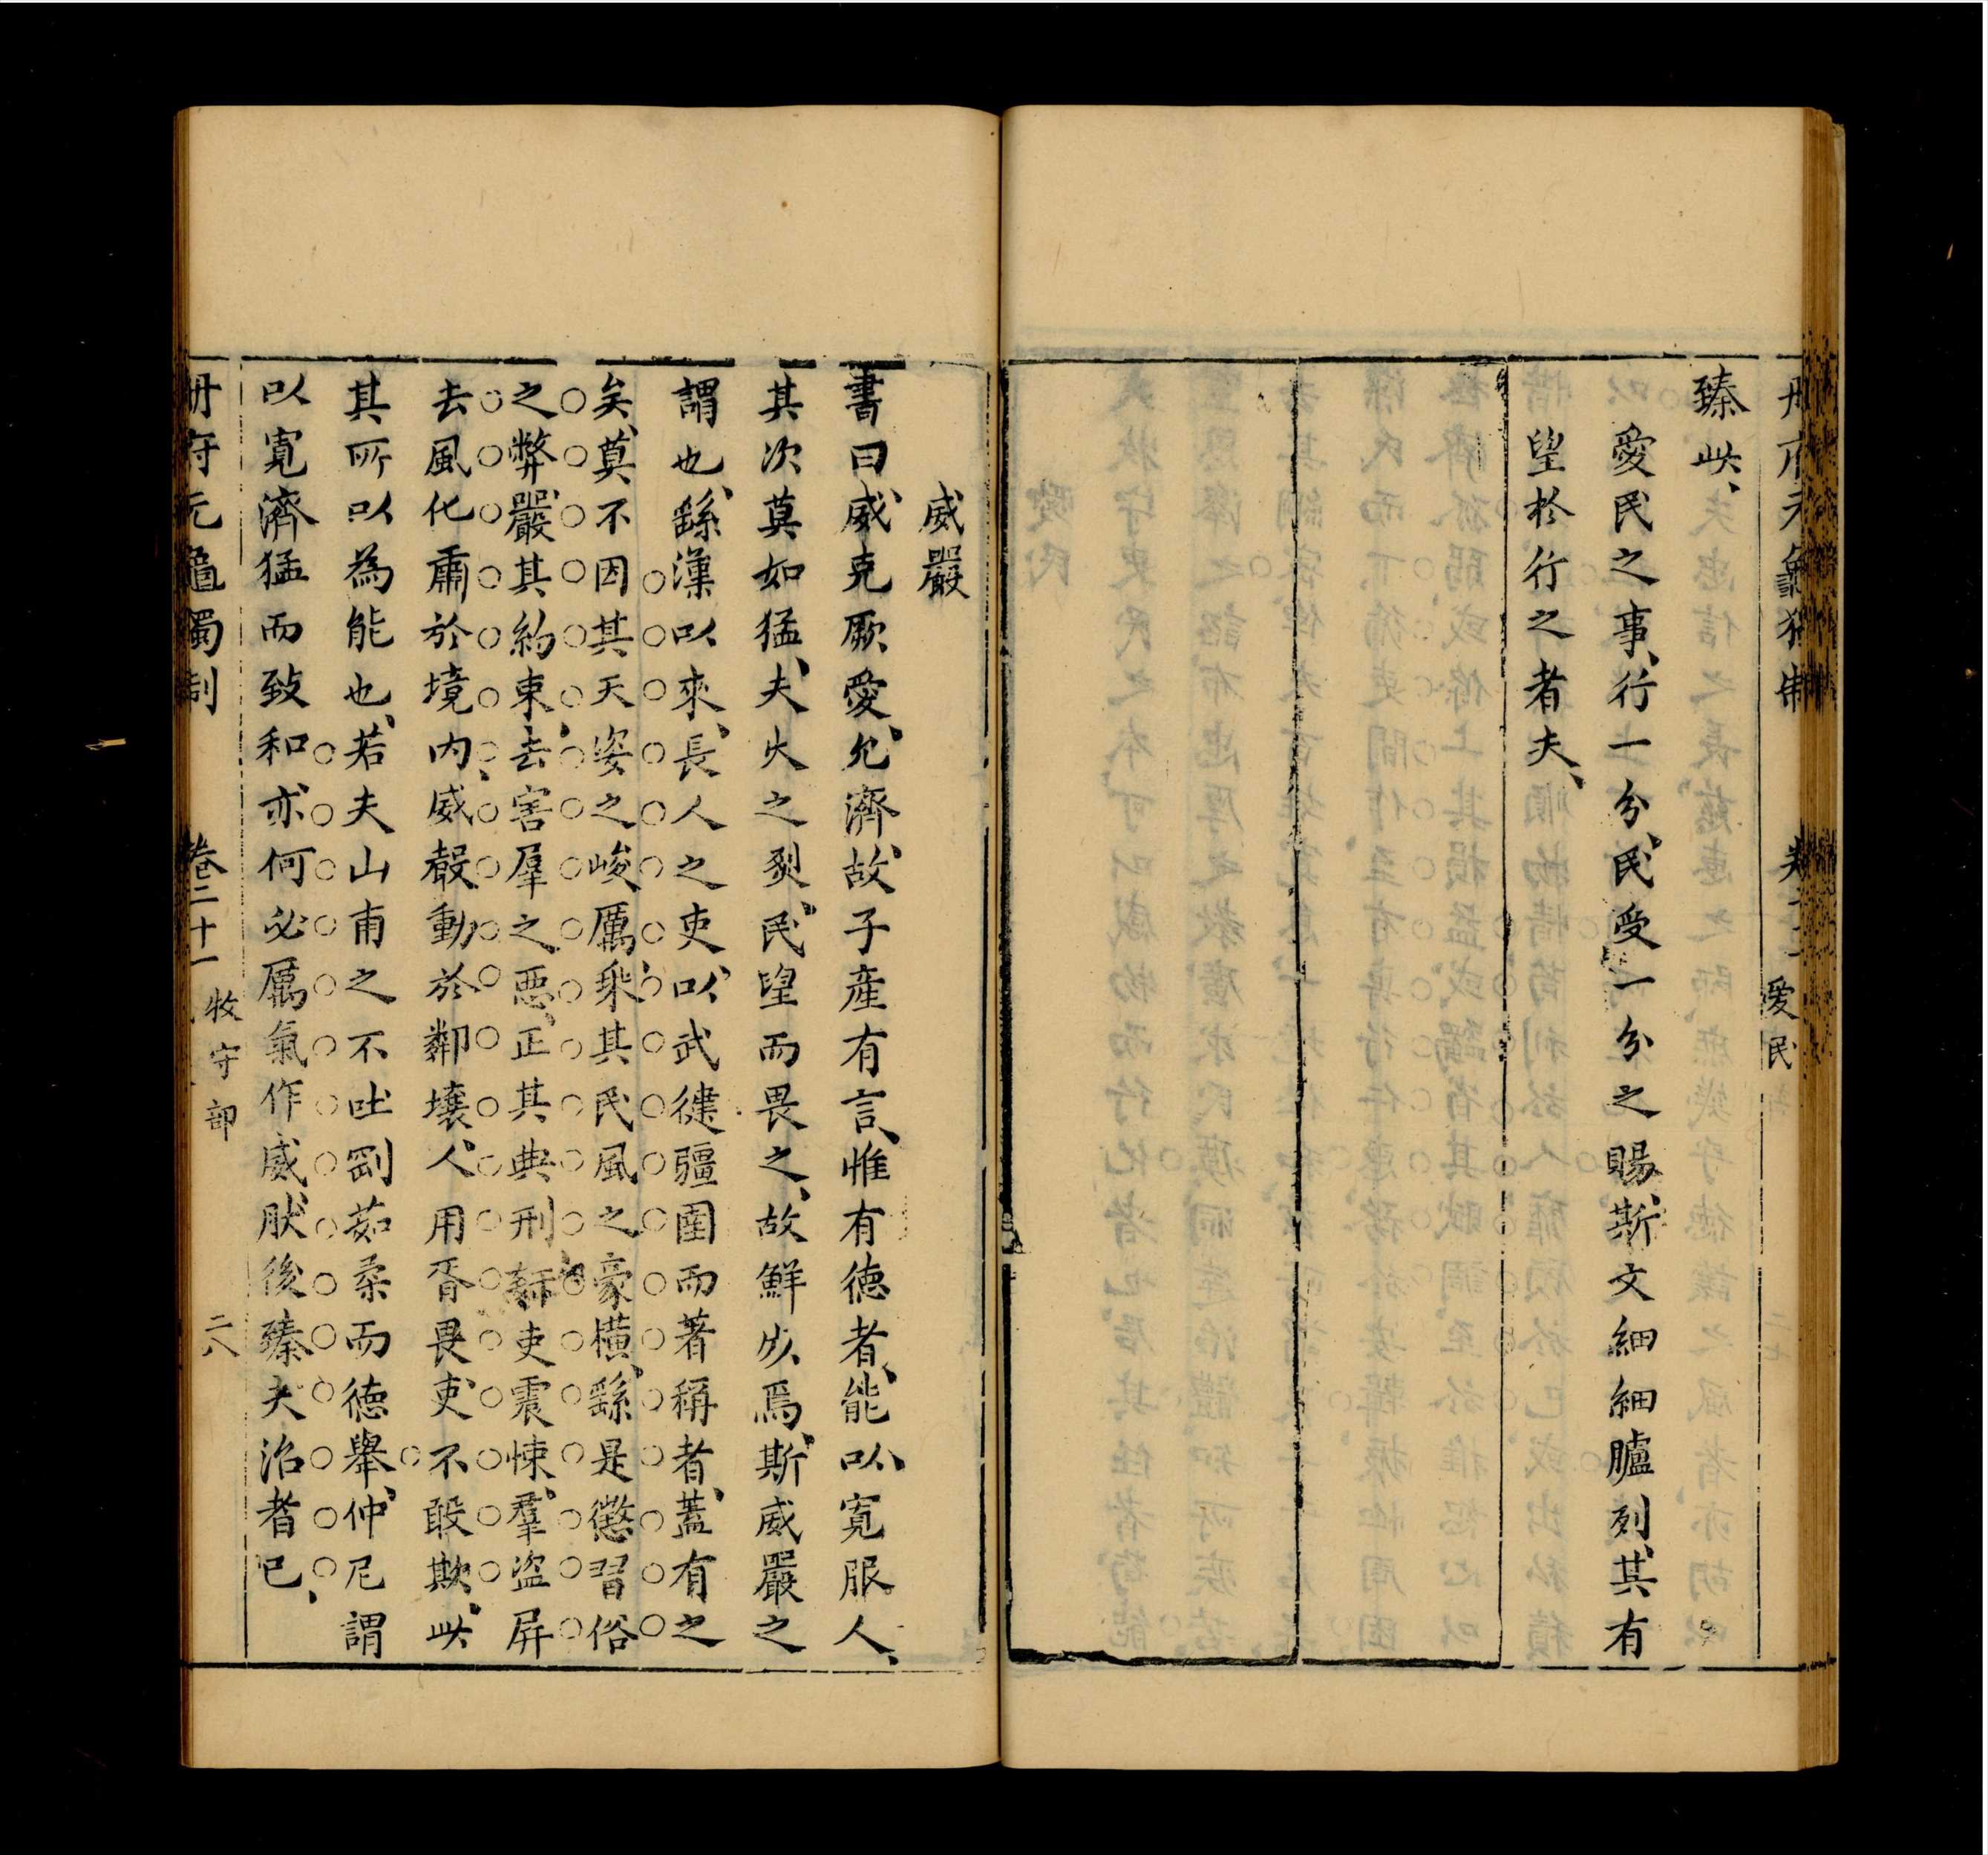 臻此、
愛民之事、行一分、民受一分之賜、斯文細細臚列、其有
望於行之者夫、
愛民
威嚴
書曰、威克厥愛、允濟、故子產有言、惟有德者、能以寬服人、
其次莫如猛、夫火之烈、民望而畏之、故鮮死焉、斯威嚴之
謂也、繇漢以來、長人之吏、以武健疆圉而著稱者、蓋有之
矣、莫不因其天姿之峻厲、乘其民風之豪橫、繇是懲習俗
之弊、嚴其約束、去害羣之惡、正其典刑、奸吏震悚、羣盜屏
去、風化肅於境內、威聲動於鄰壤、人用胥畏、吏不敢欺、此
其所以為能也、若夫山甫之不吐剛茹柔而德舉、仲尼謂
以寬濟猛而致和、亦何必厲氣作威、肰後臻夫治者巳、
冊府元龜獨制 卷二十一 牧守部 二八